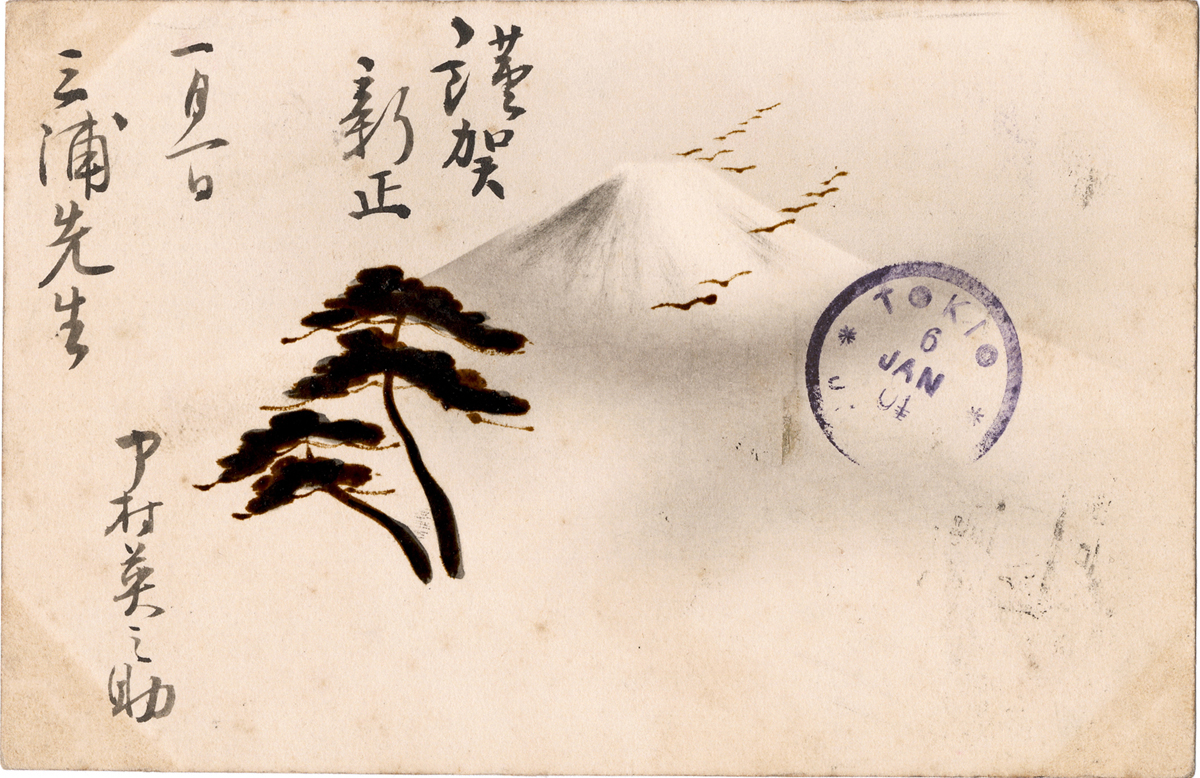 謹賀
新正
一月一日
三浦先生
中村英之助
TOKIO
6
JAN